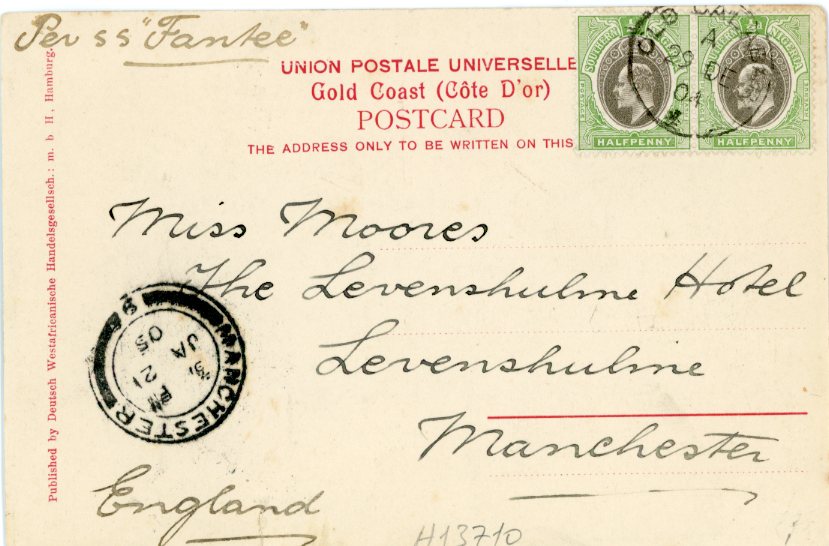 Per SS "Fantee"
UNION POSTALE UNIVERSELLE
Gold Coast (Côte D'or)
POSTCARD
THE ADDRESS ONLY TO BE WRITTEN ON THIS
SOUTHERN NIGERIA
HALFPENNY
NIGERIA
HALFPENNY
OLD CALABAR
A
29 DE
04
Miss Moores
The Levenshulme Hotel
Levenshulme
Manchester
England
MANCHESTER
JA
05
H13710
Published by Deutsch Westafricanische Handelsgesellsch.: m. b H, Hamburg.